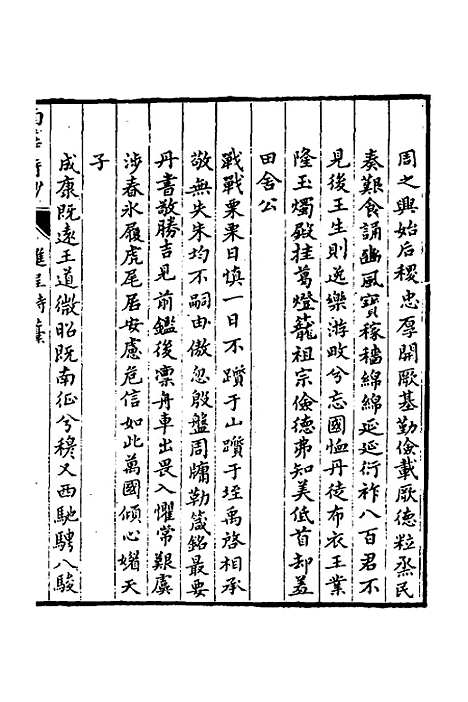 周之興始后稷忠厚開厥基勤儉載厥德粒烝民
奏艱食誦豳風寶稼穡綿綿延延衍祚八百君不
見後王生則逸樂游畋兮忘國恤丹徒布衣王業
隆玉燭發挂葛燈籠祖宗儉德弗知美低首却羞
田舍公
戰戰栗栗日慎一日不躓于山躓于垤禹啓相承
敬無失朱均不嗣由傲忽殷盤周牖勒箴銘最要
丹書敬勝吉見前鑑後凛舟車出畏入懼常艱虞
涉春氷履虎尾居安慮危信如此萬國傾心媚天
子
成康既遠王道微昭既南征兮穆又西馳騁八駿
進呈詩